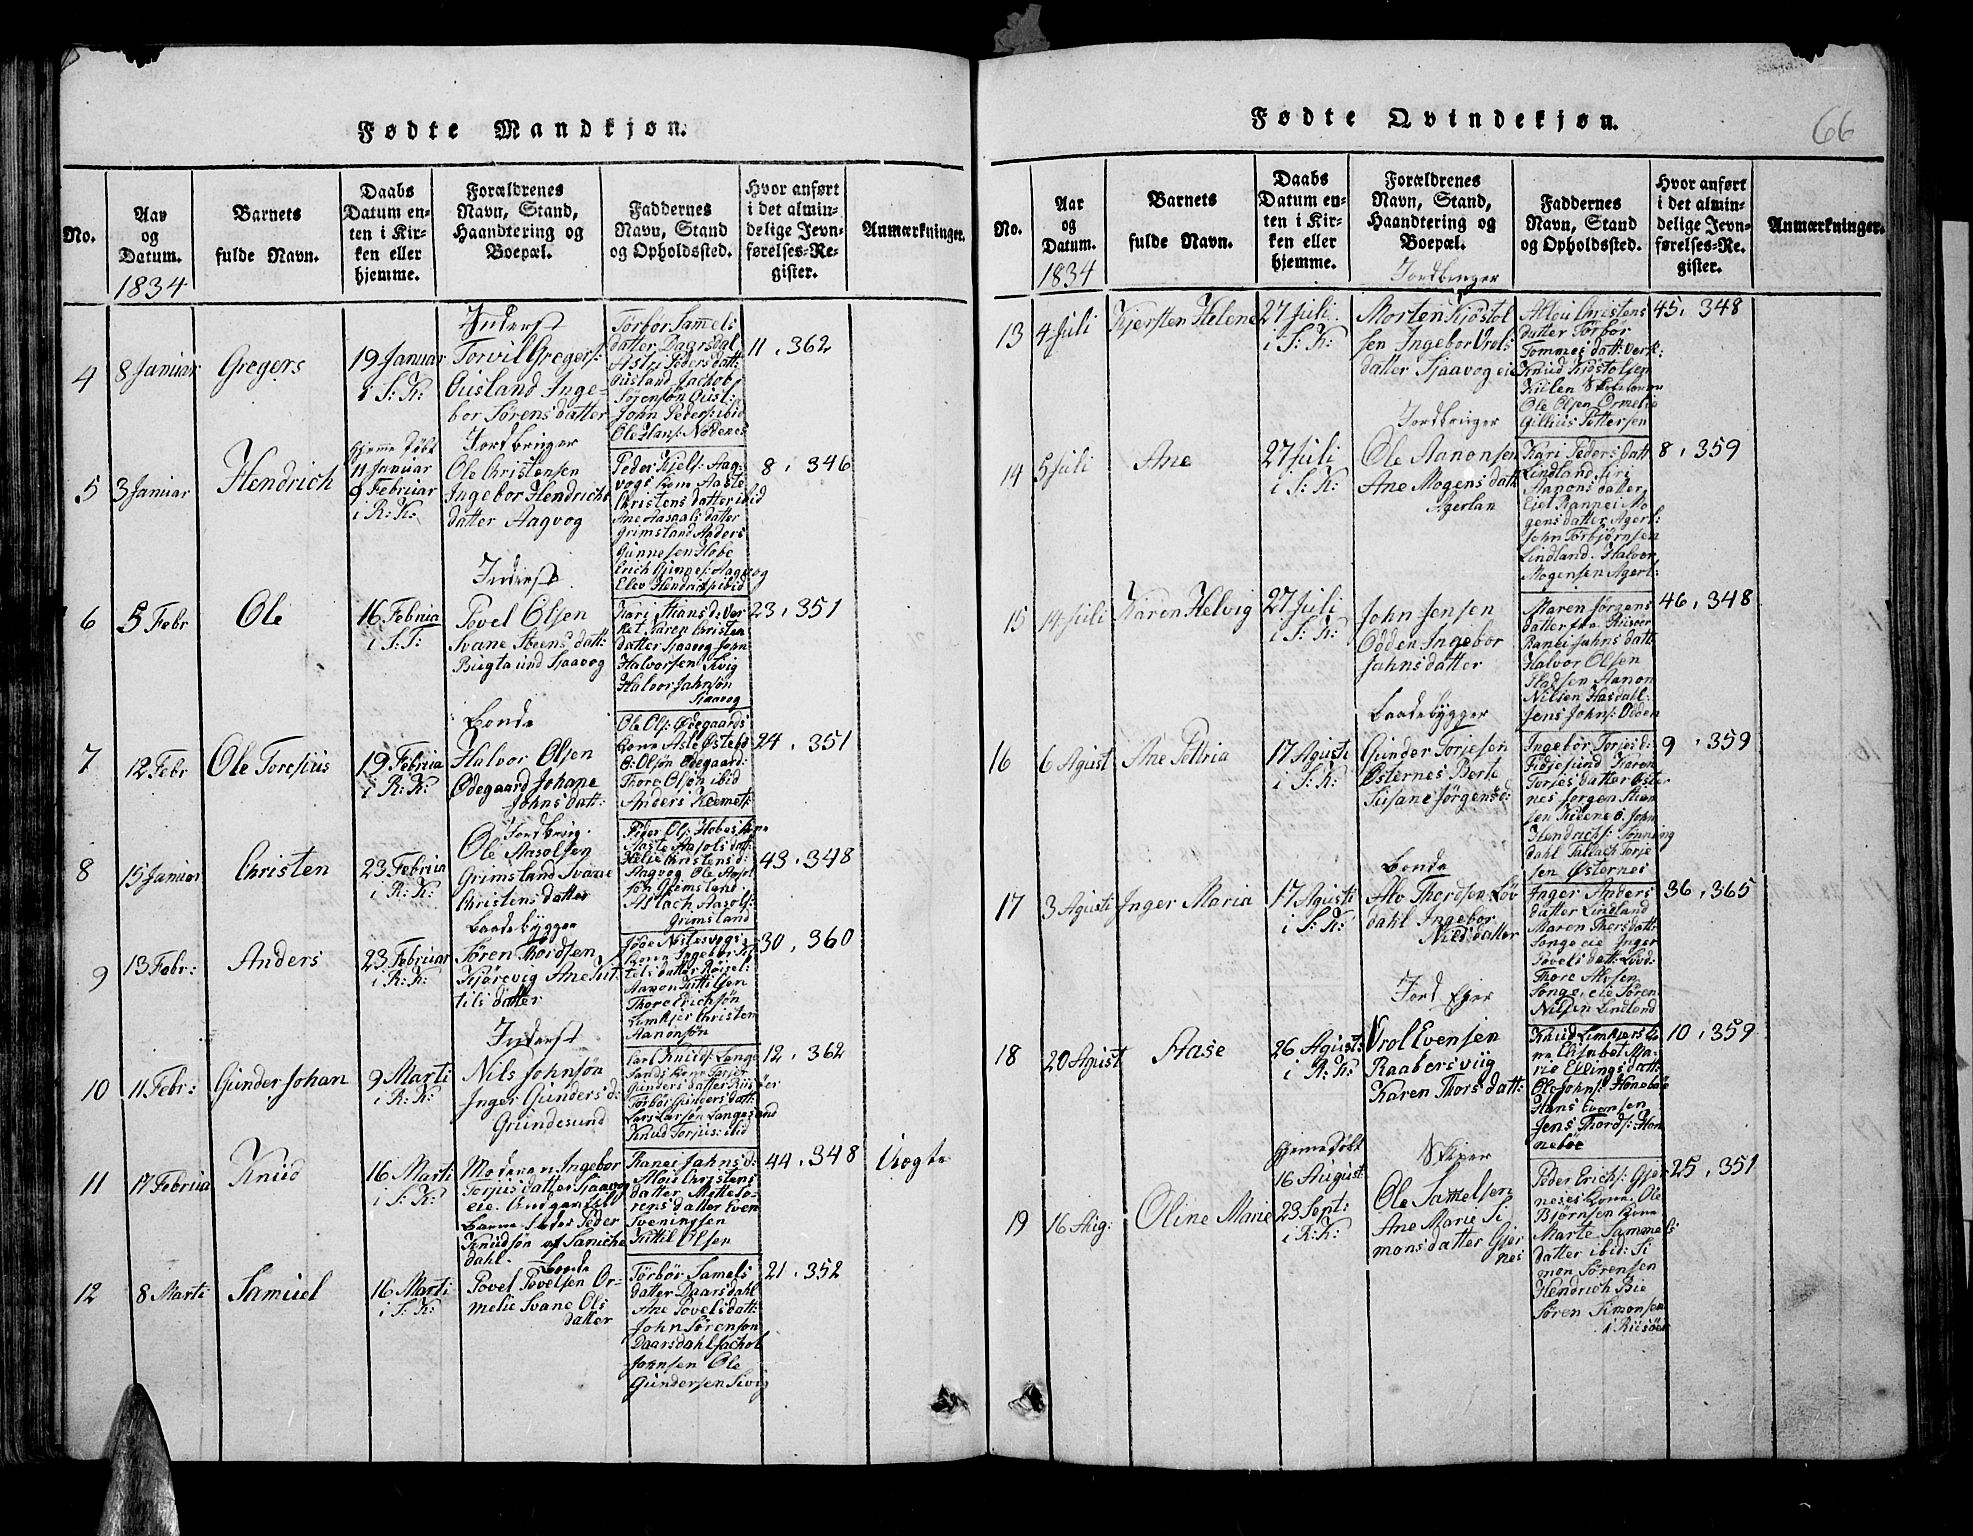 Fødte Mandkjøn.
No.
Aar
og
Datum.
1834
Barnets
fulde Navn.
Daabs
Datum en-
ten i Kir-
ken eller
hjemme.
Forældrenes
Navn, Stand,
Haandtering og
Boepæl.
Faddernes
Navn, Stand
og Opholdssted.
Hvor anført
i det almin-
delige Jevn-
førelses-Re-
gister.
Anmærkninger.
4
8 Januar
Gregers
19 Januar
i S: K:
Inderst
Torvil Gregers:
Ousland Inge-
bor Sørens datter
Torbør Samels
datter Daarsdal
Aaste Peders datt:
Ousland Jachob
Sørenson Ousl:
John Peders: ibid
Ole Hans: Nødenes
11, 362
5
3 Januar
Hendrich
Hjemme døbt
11 Januar
9 Februar
i R: K:
Jordbruger
Ole Christensen
Ingebor Hendrichs
datter Aagvog
Peder Kjels: Aag-
vogs kone Aaste
Christens datter ibid
Ane Aasaals datter
Grimsland Anders
Gunnesen Hobe
Erich Gunnes: Aagvog
Elev Hendrichs: ibid
8, 346
6
5 Febr
Ole
16 Februa
i S: K:
Inderst
Povel Olsen
Svane Steens datt:
Bugta und Sjaavog
Kari Hans d: Ver-
ket Karen Christen
datter Sjaavog John
Halvorsen Sivig
Halvor Jahnsøn
Sjaavog
23, 351
7
12 Febr
Ole Toresius
19 Februa
i R: K:
Bonde
Halvor Olsen
Ødegaard Johane
Johns datt:
Ole Ols: Ødegaards
kone Asle Østebø
O: Olsøn Ødegaard:
Thore Olsøn ibid
Anders Klemets:
24, 351
8
15 Januar
Christen
23 Februa
i R: K:
Jordbrug.
Ole Aasolsen
Grimsland Svane
Christens datter
Peder Ols: Hobes kone
Aaste Aasols dat:
Helie Christens d:
Aagvog Ole Aasol
søn Grimsland
Atlach Aasols:
Grimsland
43, 348
9
13 Febr:
Anders
23 Februar
i R: K:
Baadebygger
Søren Thordsen
Kjørevig Ane Kit-
tils datter
kone Ingebor Kit-
tels datter Røisel:
Aanon Kittilsen
Thore Erichsøn
Limkjer Christen
Aanonsøn
30, 360
10
11 Febr:
Gunder Johan
9 Marti
i R: K:
Inderst
Nils Johnsøn
Inger Gunders d:
Grundesund
Lars Knuds: Lange
Sands kone Torjer
Gunders datter Riisøer
Torbør Gunders datt:
Lars Larsøn Langesand
Knud Torjus: ibid
12, 362
11
17 Februa
Knud
16 Marti
i S: K:
Moderen Ingebor
Torjus datter Sjaavog
eie. Angiven til
Barne Fader Peder
Knudsøn af Saniche
dahl.
Ranei Jahns d:
Alou Christens
datter Mette So-
rens datter Even
Sveningsen
Kittil Olsen
44, 348
Uægte
12
8 Marti
Samuel
16 Marti
i S: K:
Bonde
Povel Povelsen Or-
melie Svane Ols
datter
Torbør Samels
datter Daarsdahl
Ane Povels datt:
John Sørenson
Daarsdahl Jachob
Johnsen Ole
Gundersen Sivig
21, 352
Fødte Qvindekjøn.
66
No.
Aar
og
Datum.
1834
Barnets
fulde Navn.
Daabs
Datum en-
ten i Kir-
ken eller
hjemme.
Forældrenes
Navn, Stand,
Haandtering og
Boepæl.
Faddernes
Navn, Stand
og Opholdssted.
Hvor anført
i det almin-
delige Jevn-
førelses-Re-
gister.
Anmærkninger.
13
4 Juli
Kjersten Helene
27 Juli
i S: K:
Jordbruger
Morten Kjøstol
sen Ingebor Vrols
datter Sjaavog eie
Alou Christens
datter Torbør
Tommes datt: Verk:
Knud Kjøstolsen
Kielen
Ole Olsen Ormelie
Gillius Pettersen
45, 348
14
5 Juli
Ane
27 Juli
i S: K:
Jordbruger
Ole Aanonsen
Ane Mogens datt
Agerlan
Kari Peders datt
Lindland Siri
Aanons datter
Eiet Rannei Mo
gens datter Agerl:
John Torbjørnsen
Lindland. Halvor
Mogensen Agerl:
8, 359
15
14 Juli
Karen Helvig
27 Juli
i S: K:
John Jensen
Odden Ingebor
Jahns datter
Maren Jørgens
datter fra Riisøer
Ranei Jahns datt
Halvor Olsen
Pladsen Aanon
Nilsen Hasdahl
Jens Johns: Odden
46, 348
16
6 Agust
Ane Pettria
17 Agusti
i S: K:
Baadebygger
Gunder Torjesen
Østernes Berte
Susane Jørgens d:
Ingebor Torjes d:
Fidjesund Karen
Torjes datter Øster
nes Jorgen Steen
sen Kidene o. John
Hendrichs: Sønning
dahl Tallach Torje
sen Østernes
9, 359
17
3 Agusti
Inger Maria
17 Agusti
i S: K:
Bonde
Alv Thordsen Løv
dahl Ingebor
Nils datter
Inger Anders
datter Lindland
Maren Thors datt:
Songe eie Inger
Povels datt: Løvd:
Thore Alvsen
Songe eie Søren
Nilsen Lindland
36, 365
18
20 Agust
Aase
26 Agust:
i R: K:
Jord Eger
Vrol Evensen
Raabersviig
Karen Thors datt:
Knud Limkjers ko-
ne Elisabet Ma-
rie Ellings datt:
Ole Johns: Honebøe
Hans Evensen
Jens Thords: Hon
nebøe
10, 359
19
16 Aug:
Oline Marie
Hjemedøbt
16 August
23 Sept:
i R: K:
Skiper
Ole Samelsen
Ane Marie Si
mons datter Gjer
nes
Peder Erichs: Gjer
neses kone. Ole
Bjørnsen kone
Marte Sammels
datter ibid: Si
mon Sørensen
Hendrich Bie
Søren Simonsen
i Riisøer
25, 351